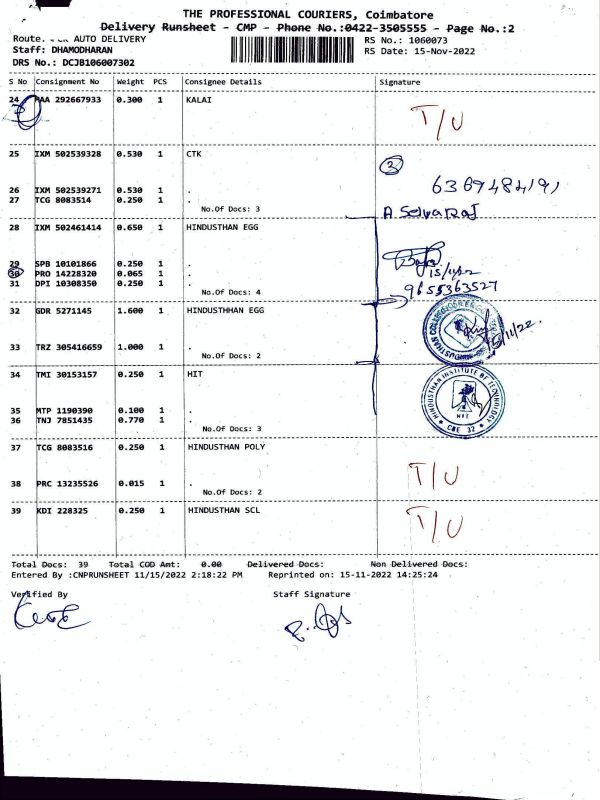 THE PROFESSIONAL COURIERS, Coimbatore
Delivery Runsheet - CMP - Phone No.:0422-3505555 - Page No.:2
Route. AUTO DELIVERY
RS No.: 1060073
Staff: DHAMODHARAN
RS Date: 15-Nov-2022
DRS No.: DCJB106007302
S No Consignment No Weight PCS Consignee Details Signature
24 PAA 292667933 0.300 1 KALAI T/U
25 IXM 502539328 0.530 1 CTK
3
26 IXM 502539271 0.530 1 . 6369484191
27 TCG 8083514 0.250 1 .
No.Of Docs: 3 A Selvaraj
28 IXM 502461414 0.650 1 HINDUSTHAN EGG
29 SPB 10101866 0.250 1 .
30 PRO 14228320 0.065 1 . 15/11/22
31 DPI 10308350 0.250 1 .
No.Of Docs: 4 9655363527
32 GDR 5271145 1.600 1 HINDUSTHHAN EGG
15/11/22
33 TRZ 305416659 1.000 1 .
No.Of Docs: 2
34 TMI 30153157 0.250 1 HIT
HINDUSTHAN INSTITUTE OF TECHNOLOGY
HIT
CBE 32
35 MTP 1190390 0.100 1 .
36 TNJ 7851435 0.770 1 .
No.Of Docs: 3
37 TCG 8083516 0.250 1 HINDUSTHAN POLY
T/U
38 PRC 13235526 0.015 1 .
No.Of Docs: 2
39 KDI 228325 0.250 1 HINDUSTHAN SCL T/U
Total Docs: 39 Total COD Amt: 0.00 Delivered Docs: Non Delivered Docs:
Entered By :CNPRUNSHEET 11/15/2022 2:18:22 PM Reprinted on: 15-11-2022 14:25:24
Verified By Staff Signature